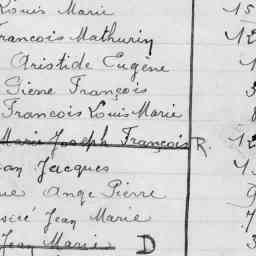 Louis Marie 15
François Mathurin 12
Aristide Eugène 1
François
François Louis Marie
Marie Joseph François R. 12
Jean Jacques
Ange Pierre 9
Jean Marie 7
Jean Marie D 3